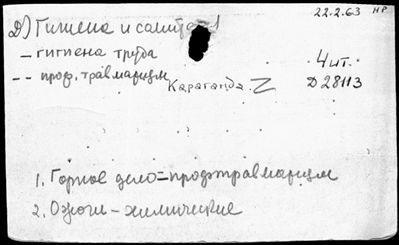 22.2.63 НР
Д) Гигиена и санит
– гигиена труда
4 шт.
– – проф. травматизм
Караганда. Z
Д 28113
1. Горное дело = профтравматизм
2. Ожоги – химические